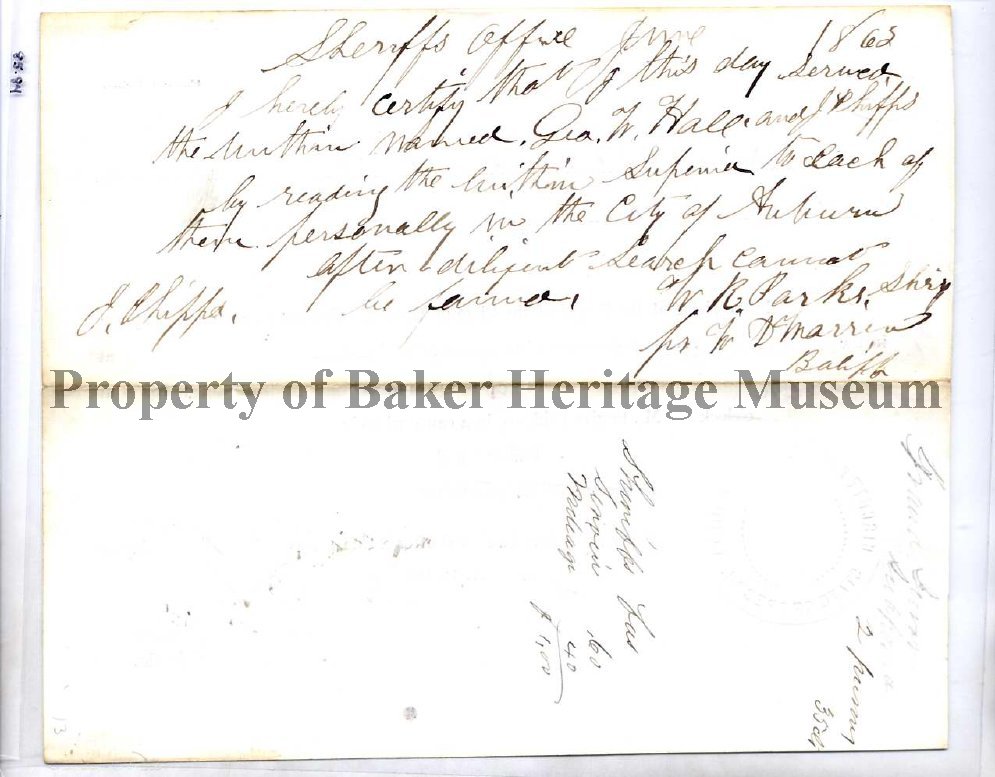 Sheriffs Office June 1863
I hereby certify that I this day served
the within named Geo. W. Hall and J Phipps
by reading the within Supena to each of
them personally in the City of Auburn
after diligent search cannot
J. Phipps. be found. W. R. Parks, Shrif
pr. W D Warren
Baliff
Property of Baker Heritage Museum
Sherriffs Fees
Servin 60
Mileage 40
$ 1,00
Grand
2 persons